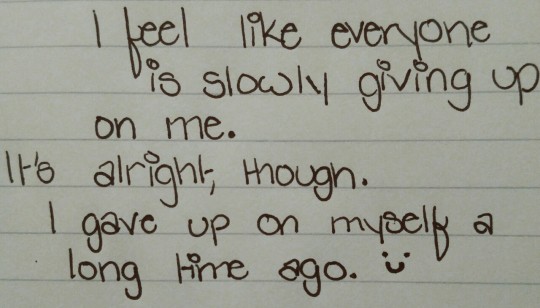 I feel like everyone
is slowly giving up
on me.
It's alright, though.
I gave up on myself a
long time ago. :)